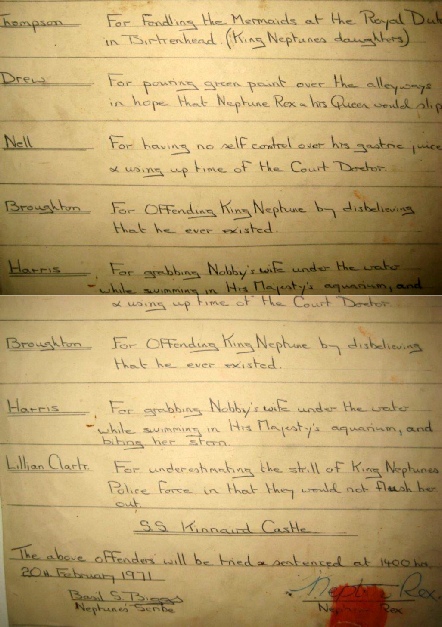 hompson For Fondling the Mermaids at the Royal Dub
in Birtrenhead (King Neptunes daughters)
Drew For pouring green paint over the alleyways
in hope that Neptune Rex & his Queen would slip
Nell For having no self control over his gastric juice
& using up time of the Court Doctor
Broughton For Offending King Neptune by disbelieving
that he ever existed
Harris For grabbing Nobby's wife under the water
while swimming in His Majesty's aquarium, and
& using up time of the Court Doctor
Broughton For Offending King Neptune by disbelieving
that he ever existed.
Harris For grabbing Nobby's wife under the water
while swimming in His Majesty's aquarium, and
biting her stern
Lillian Clarke For underestimating the skill of King Neptunes
Police Force in that they would not flush her
out.
SS Kinnaird Castle
The above offenders will be tried & sentenced at 1400 hrs
20th February 1971
Basil S. Biggs Neptune Rex.
Neptunes Scribe Neptune Rex